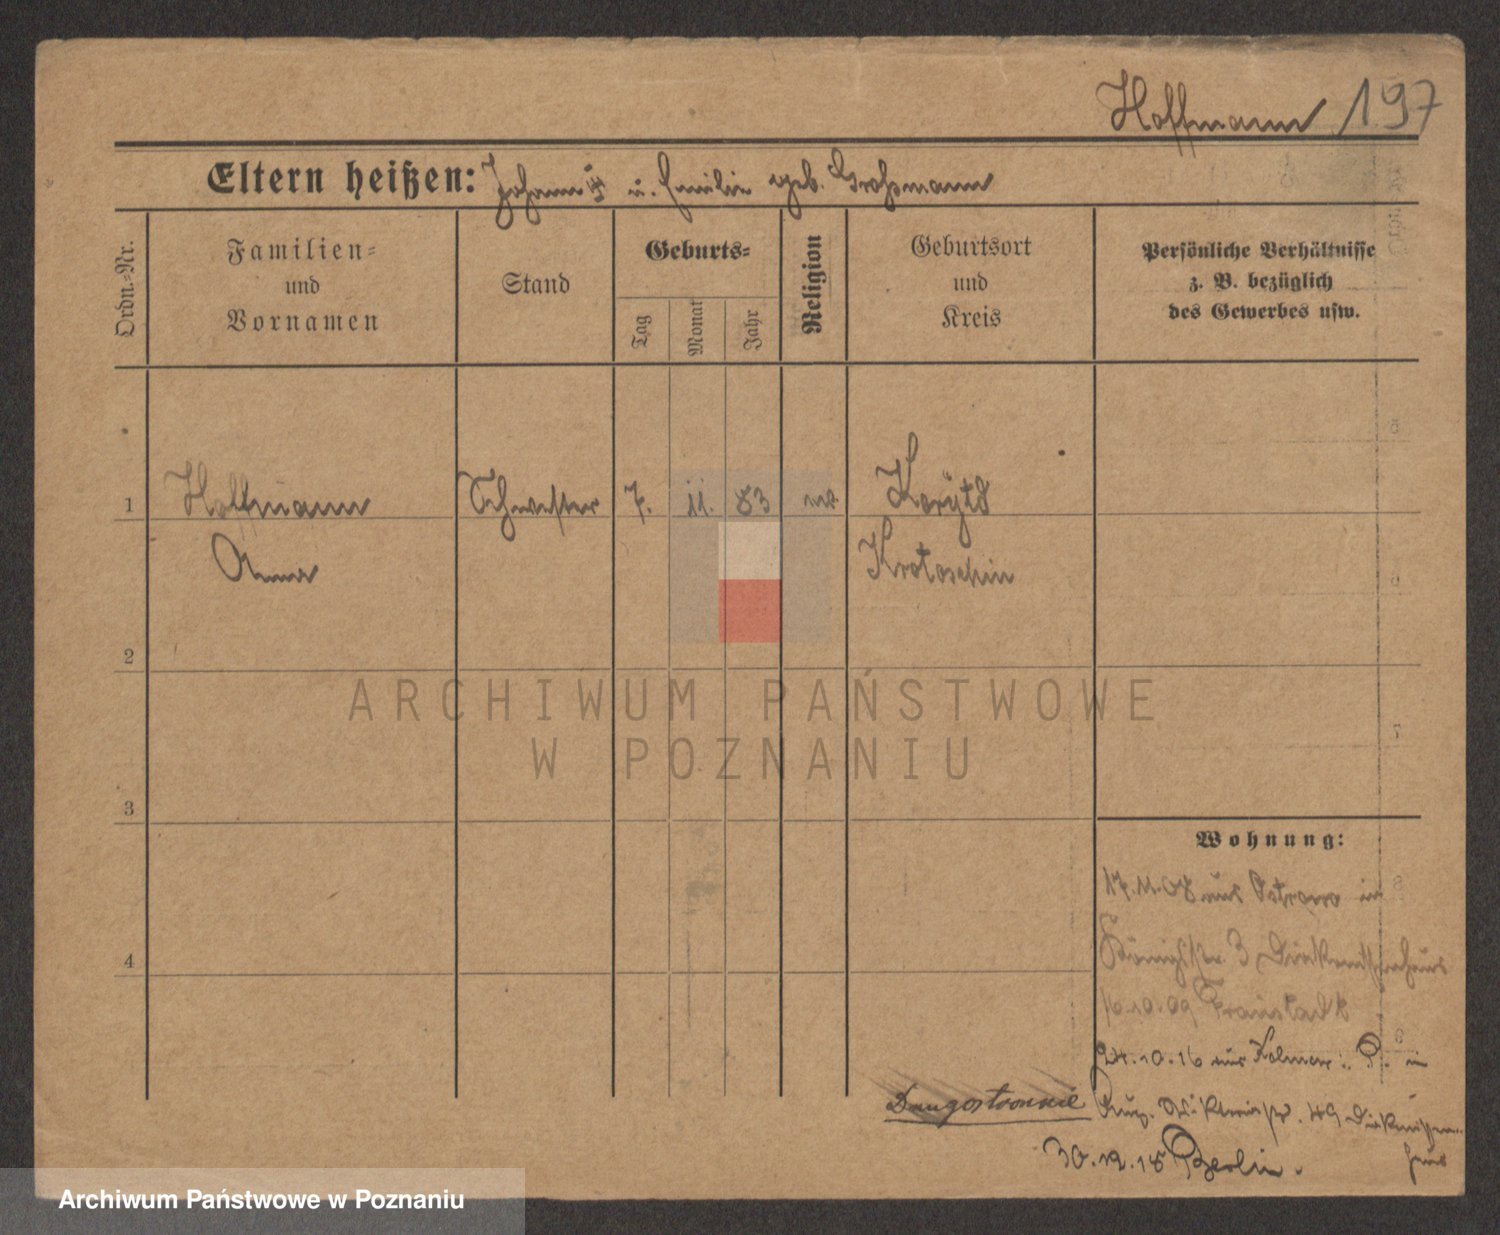 Hoffmann 197
Eltern heißen: Johann u. Emilie geb. Großmann
Ordn.-Nr.
Familien-
und
Vornamen
Stand
Geburts-
Tag
Monat
Jahr
Religion
Geburtsort
und
Kreis
Persönliche Verhältnisse
z. B. bezüglich
des Gewerbes usw.
1 Hoffmann Schwester 7. 11. 83 Korytd
Anna Krotoschin
2
3
4
Wohnung:
17.11.08 aus Ostrowo in
Königstr. 3 Diakonissenhaus
16.10.09 Fraustadt
24.10.16 aus Kolmar i. P. in
Aug. Viktoriastr. 49 Diakonissen-
haus
30.12.18 Berlin.
ARCHIWUM PAŃSTWOWE
W POZNANIU
Archiwum Państwowe w Poznaniu